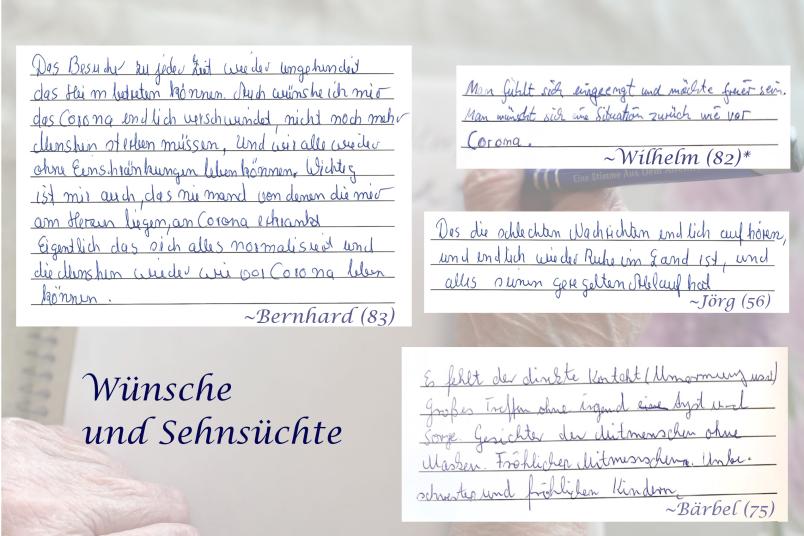 Das Besucher zu jeder Zeit wieder ungehindert
das Heim betreten können. Auch wünsche ich mir
das Corona endlich verschwindet, nicht noch mehr
Menschen sterben müssen, und wir alle wieder
ohne Einschränkungen leben können. Wichtig
ist mir auch, das niemand von denen die mir
am Herzen liegen, an Corona erkrankt
Eigentlich das sich alles normalisiert und
die Menschen wieder wie vor Corona leben
können.
~Bernhard (83)
Man fühlt sich eingeengt und möchte freier sein.
Man wünscht sich eine Situation zurück wie vor
Corona.
~Wilhelm (82)*
Eine Stimme Aus Dem
Das die schlechten Nachrichten endlich aufhören,
und endlich wieder Ruhe im Land ist, und
alles seinen geregelten Ablauf hat
~Jörg (56)
Wünsche
und Sehnsüchte
Es fehlt der direkte Kontakt (Umarmung usw)
Großes Treffen ohne irgend eine Angst und
Sorge. Gesichter der Mitmenschen ohne
Masken. Fröhlichen Mitmenschen. Unbe-
schwerten und fröhlichen Kindern.
~Bärbel (75)